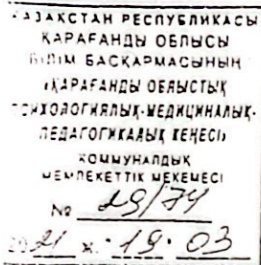 ҚАЗАҚСТАН РЕСПУБЛИКАСЫ
ҚАРАҒАНДЫ ОБЛЫСЫ
БІЛІМ БАСҚАРМАСЫНЫҢ
«ҚАРАҒАНДЫ ОБЛЫСТЫҚ
ПСИХОЛОГИЯЛЫҚ-МЕДИЦИНАЛЫҚ-
ПЕДАГОГИКАЛЫҚ КЕҢЕСІ»
КОММУНАЛДЫҚ
МЕМЛЕКЕТТІК МЕКЕМЕСІ
№ 29/74
2021 ж. "19" 03